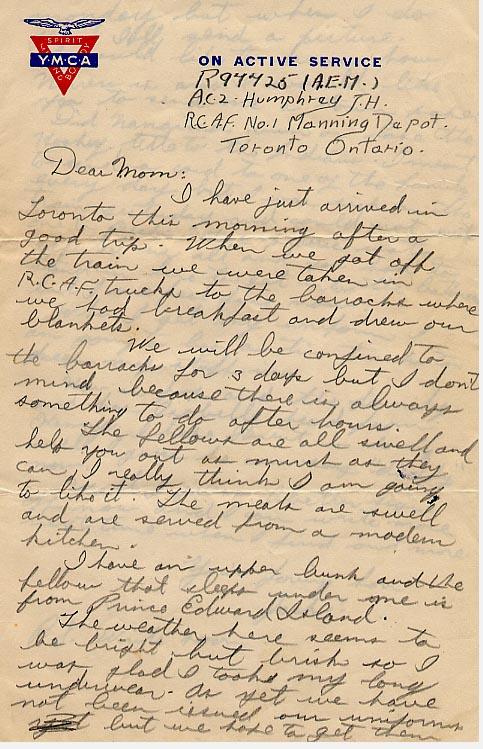 SPIRIT
MIND
BODY
Y·M·C·A
ON ACTIVE SERVICE
R94425 (A.E.M.)
AC2. Humphrey J.H.
R.C.A.F. No.1 Manning Depot.
Toronto Ontario.
Dear Mom:
I have just arrived in
Toronto this morning after a
good trip. When we got off
the train we were taken in
R.C.A.F. trucks to the barracks where
we had breakfast and drew our
blankets.
We will be confined to
the barracks for 3 days but I don't
mind because there is always
something to do after hours.
The fellows are all swell and
help you out as much as they
can, I really think I am going
to like it. The meals are swell
and are served from a modern
kitchen.
I have an upper bunk and the
fellow that sleeps under me is
from Prince Edward Island.
The weather here seems to
be bright but brisk so I
was glad I took my long
underwear. As yet we have
not been issued our uniforms
but we hope to get them